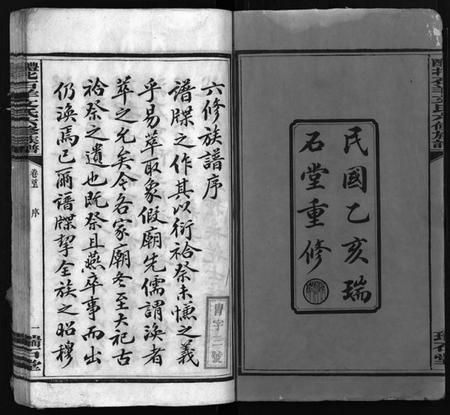 民國乙亥瑞
石堂重修
六修族譜序
譜牒之作其以衍祫祭未慊之義
乎易萃取象假廟先儒謂渙者
萃之尤矣今各家廟冬至大祀古
祫祭之遺也既祭且燕卒事而出
仍渙焉已爾譜牒挈全族之昭穆
卷首 序
一 瑞石堂